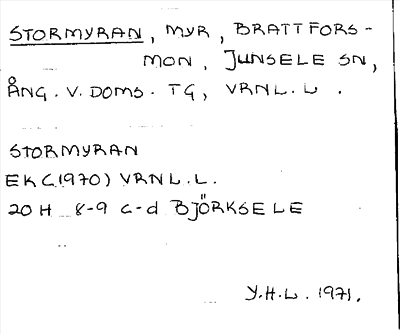 STORMYRAN, MYR, BRATTFORS-
MON, JUNSELE SN,
ÅNG. V. DOMS. TG, VRNL.L.
STORMYRAN
EK (1970) VRNL.L.
20 H 8-9 c-d BJÖRKSELE
Y.H.L. 1971.